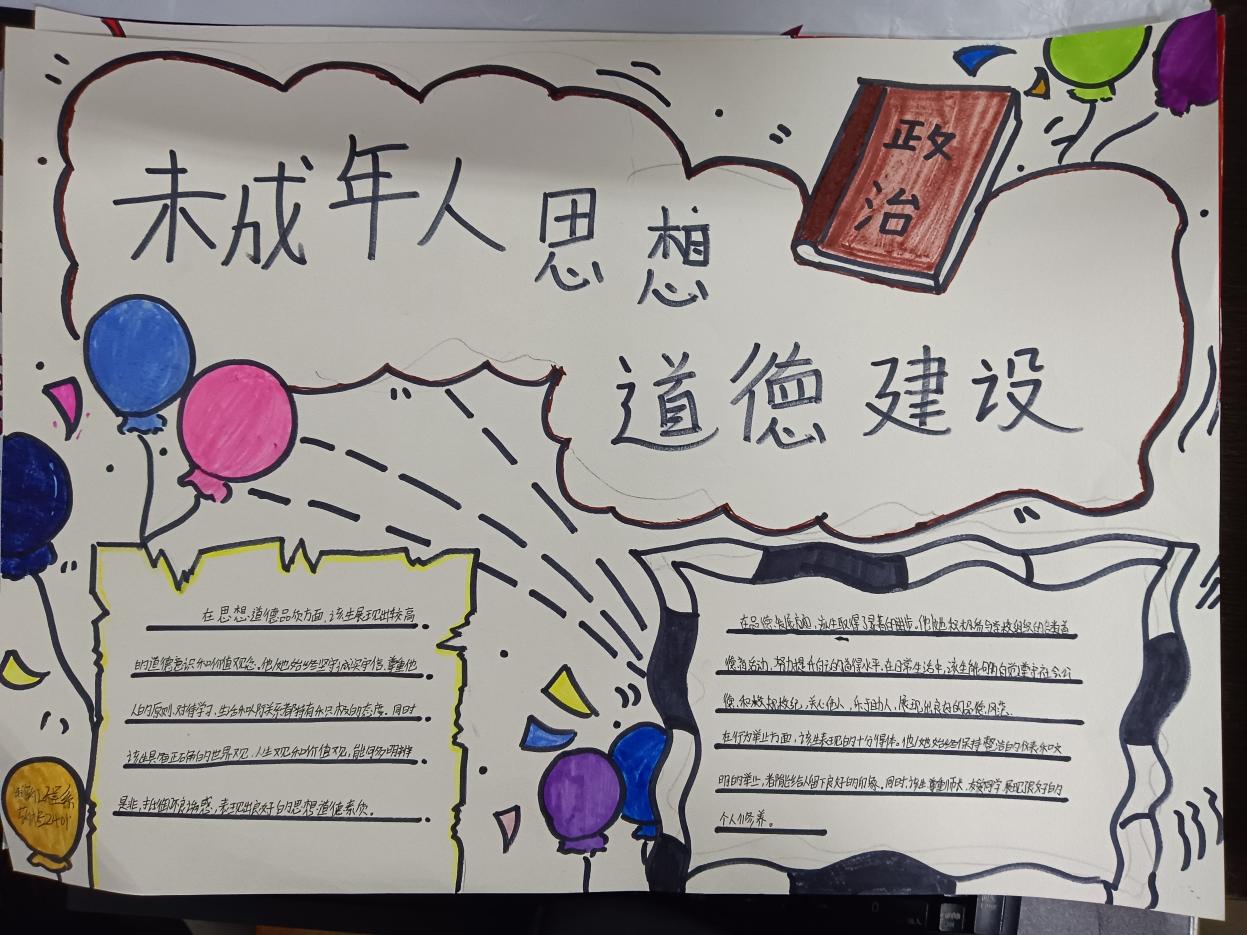 未成年人思想
政治
道德建设
在思想道德品质方面,该生展现出较高
的道德意识和价值观念。他/她始终坚守诚实守信、尊重他
人的原则,对待学习、生活和人际关系都持有积极的态度。同时
该生具有正确的世界观、人生观和价值观,能够明辨
是非,抵御不良诱惑,表现出良好的思想道德素质。
在品德发展方面,该生取得了显著的进步。他/她积极参与学校组织的
德育活动,努力提升自己的道德水平。在日常生活中,该生能够自觉遵守社会公
德和学校校纪,关心他人,乐于助人,展现出良好的品德风范。
在行为举止方面,该生表现的十分得体。他/她始终保持整洁的仪表和文
明的举止,都能给人留下良好的印象。同时,该生尊重师长,友爱同学,展现很好的
个人修养。
工程系